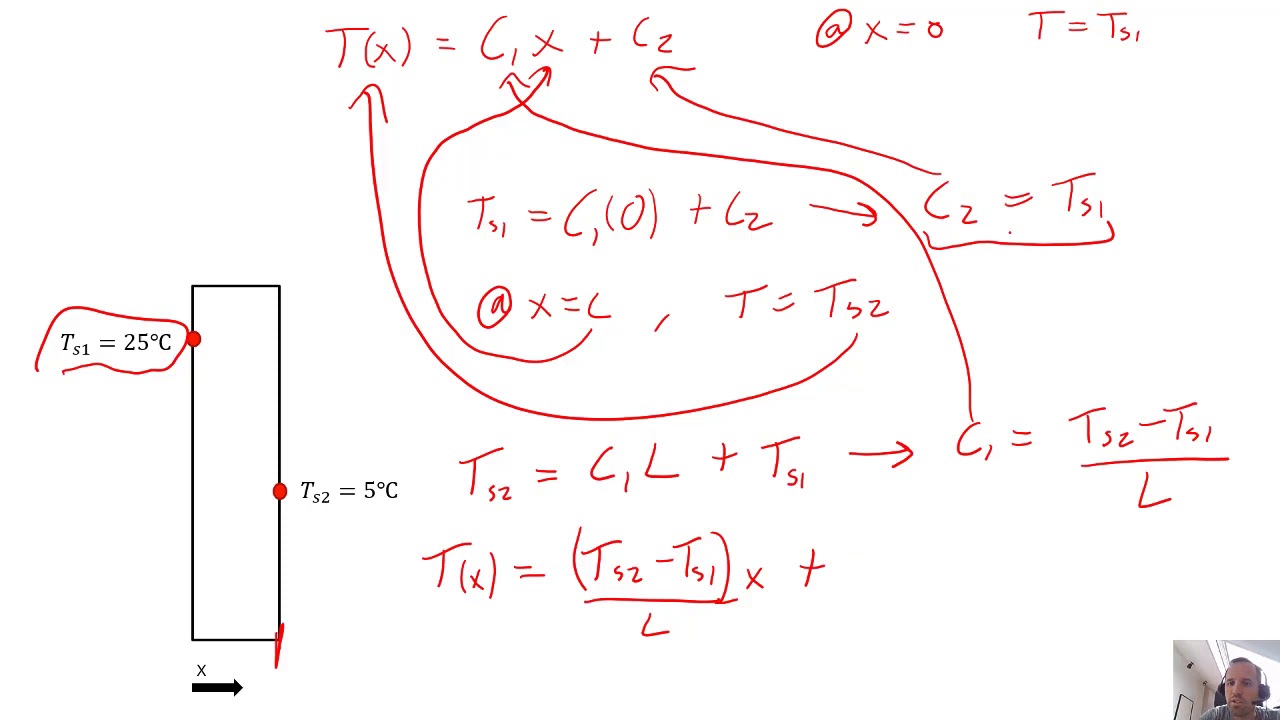 T(x) = C₁x + C₂
@ x = 0 T = Ts1
Ts1 = C₁(0) + C₂ → C₂ = Ts1
@ x = L , T = Ts2
Ts1 = 25°C
Ts2 = C₁L + Ts1 → C₁ = (Ts2 − Ts1)/L
Ts2 = 5°C
T(x) = (Ts2 − Ts1)/L x +
x